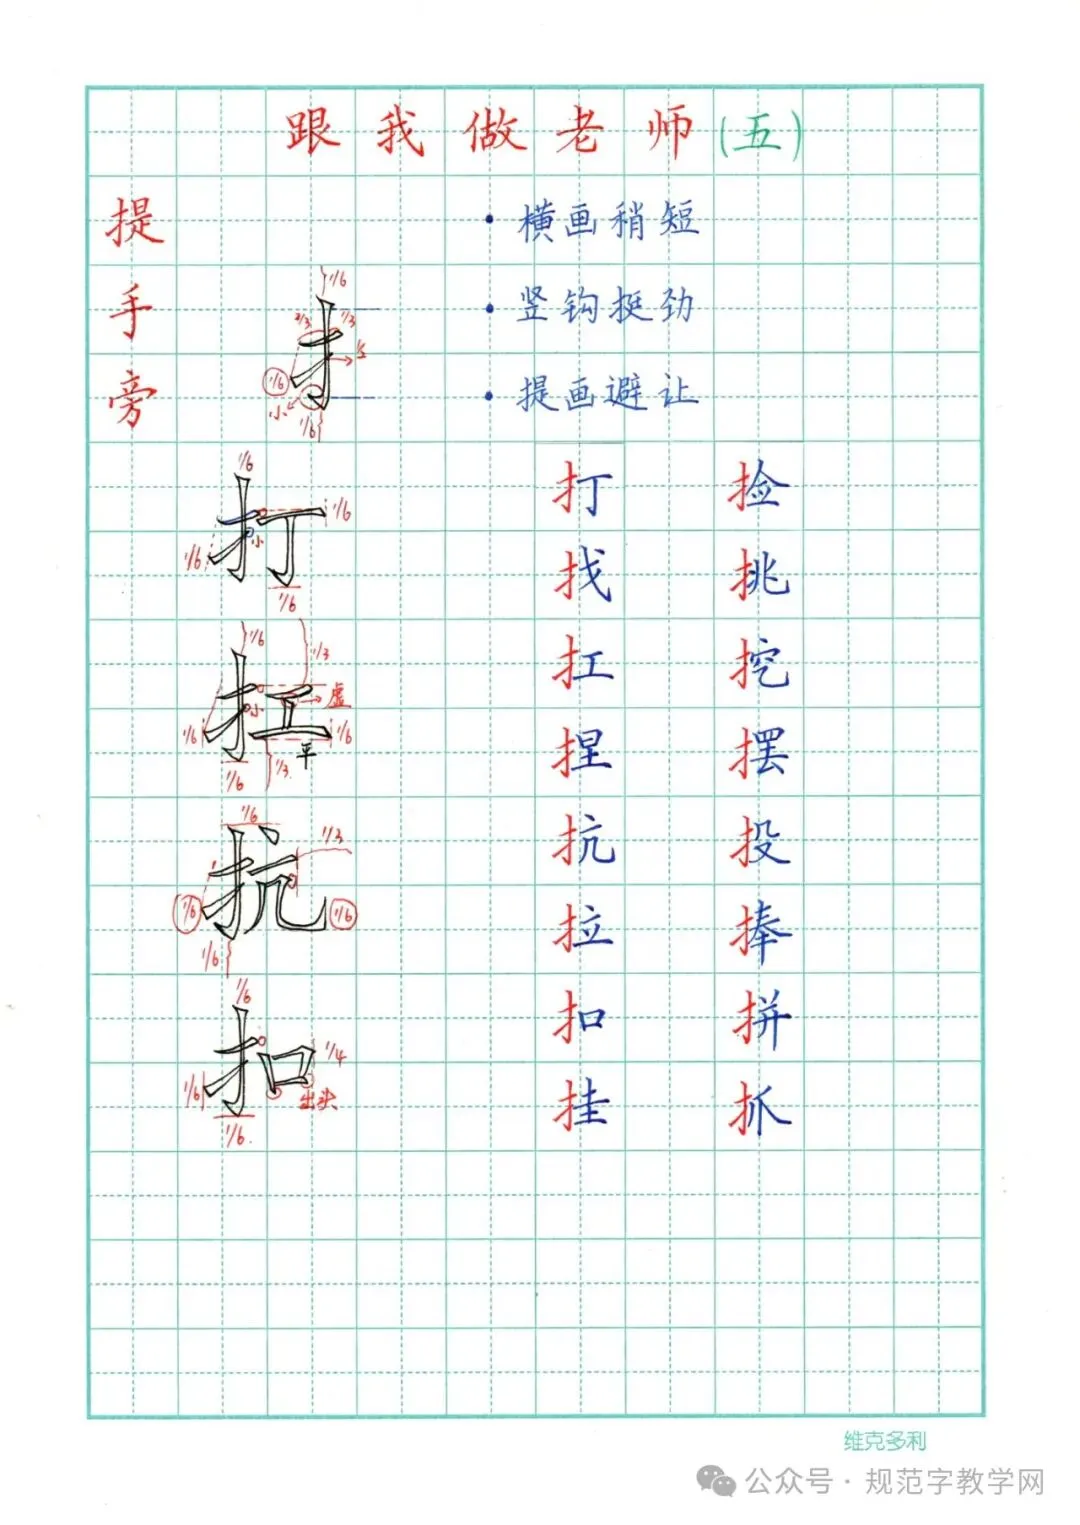 跟我做老师(五)
提手旁
· 横画稍短
· 竖钩挺劲
· 提画避让
1/6
2/3 1/3
1/6
小
1/6
1/6
打
1/6
1/6
小
1/6
1/6
扛
1/3
虚
小
1/6
1/6
平
1/6
1/3
1/6
抗
1/3
1/6
1/6
1/6
1/6
扣
1/4
1/6
出头
1/6
打 捡
找 挑
扛 挖
捏 摆
抗 投
拉 捧
扣 拼
挂 抓
维克多利
公众号·规范字教学网